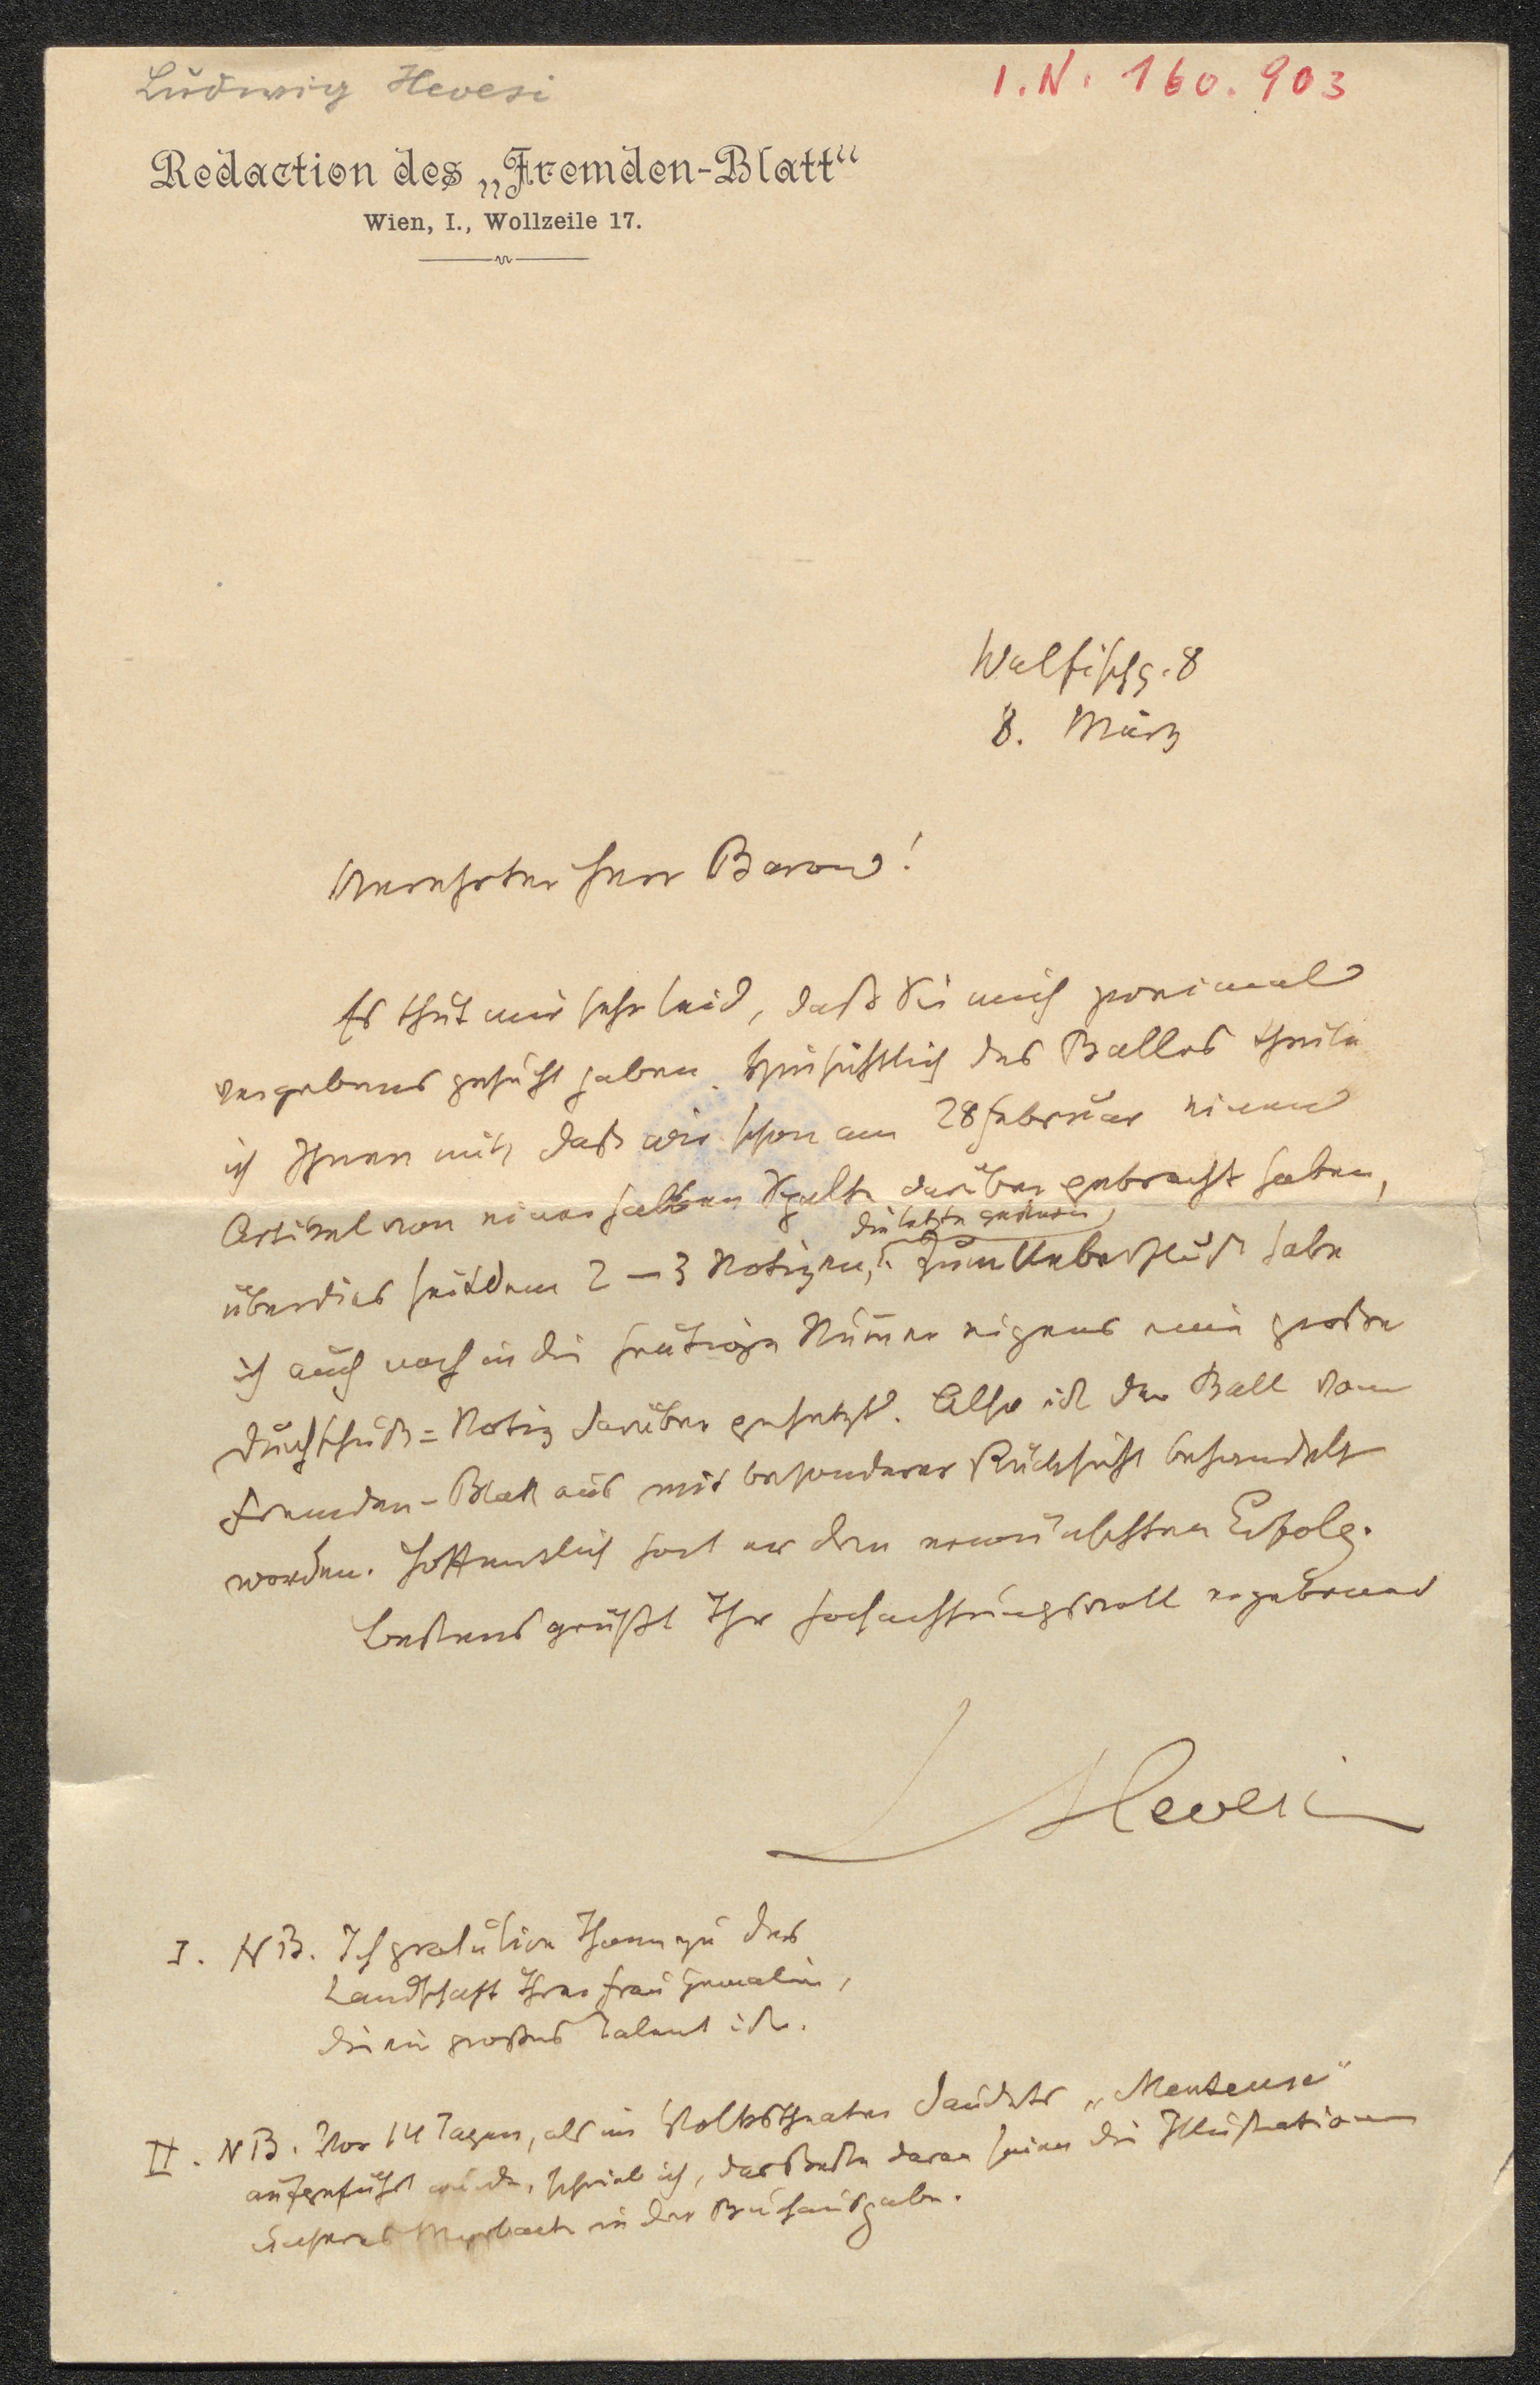 Ludwig Hevesi
I.N. 160.903
Redaction des „Fremden-Blatt“
Wien, I., Wollzeile 17.
Walfischg. 8
8. März
Verehrter Herr Baron!
Es thut mir sehr leid, daß Sie mich zweimal
vergebens gesucht haben. Hinsichtlich des Balles theile
ich Ihnen mit, daß wir schon am 28 Februar einen
Artikel von einer halben Spalte darüber gebracht haben,
überdies seitdem 2 – 3 Notizen, die letzte gestern, zum Ueberfluß habe
ich auch noch in die heutige Num̄er eigens eine große
Durchschuß=Notiz darüber gesetzt. Also ist der Ball vom
Fremden-Blatt aus mit besonderer Rücksicht behandelt
worden. Hoffentlich hat er den erwünschten Erfolg.
Bestens grüßt Ihr hochachtungsvoll ergebener
L Hevesi
I. NB. Ich gratulire Ihnen zu der
Landschaft Ihrer Frau Gemalin,
die ein großes Talent ist.
II. NB. Vor 14 Tagen, als im Volkstheater Daudets „Menteuse“
aufgeführt wurde, schrieb ich, das Beste daran seien die Illustrationen
unseres Myrbach in der Buchausgabe.